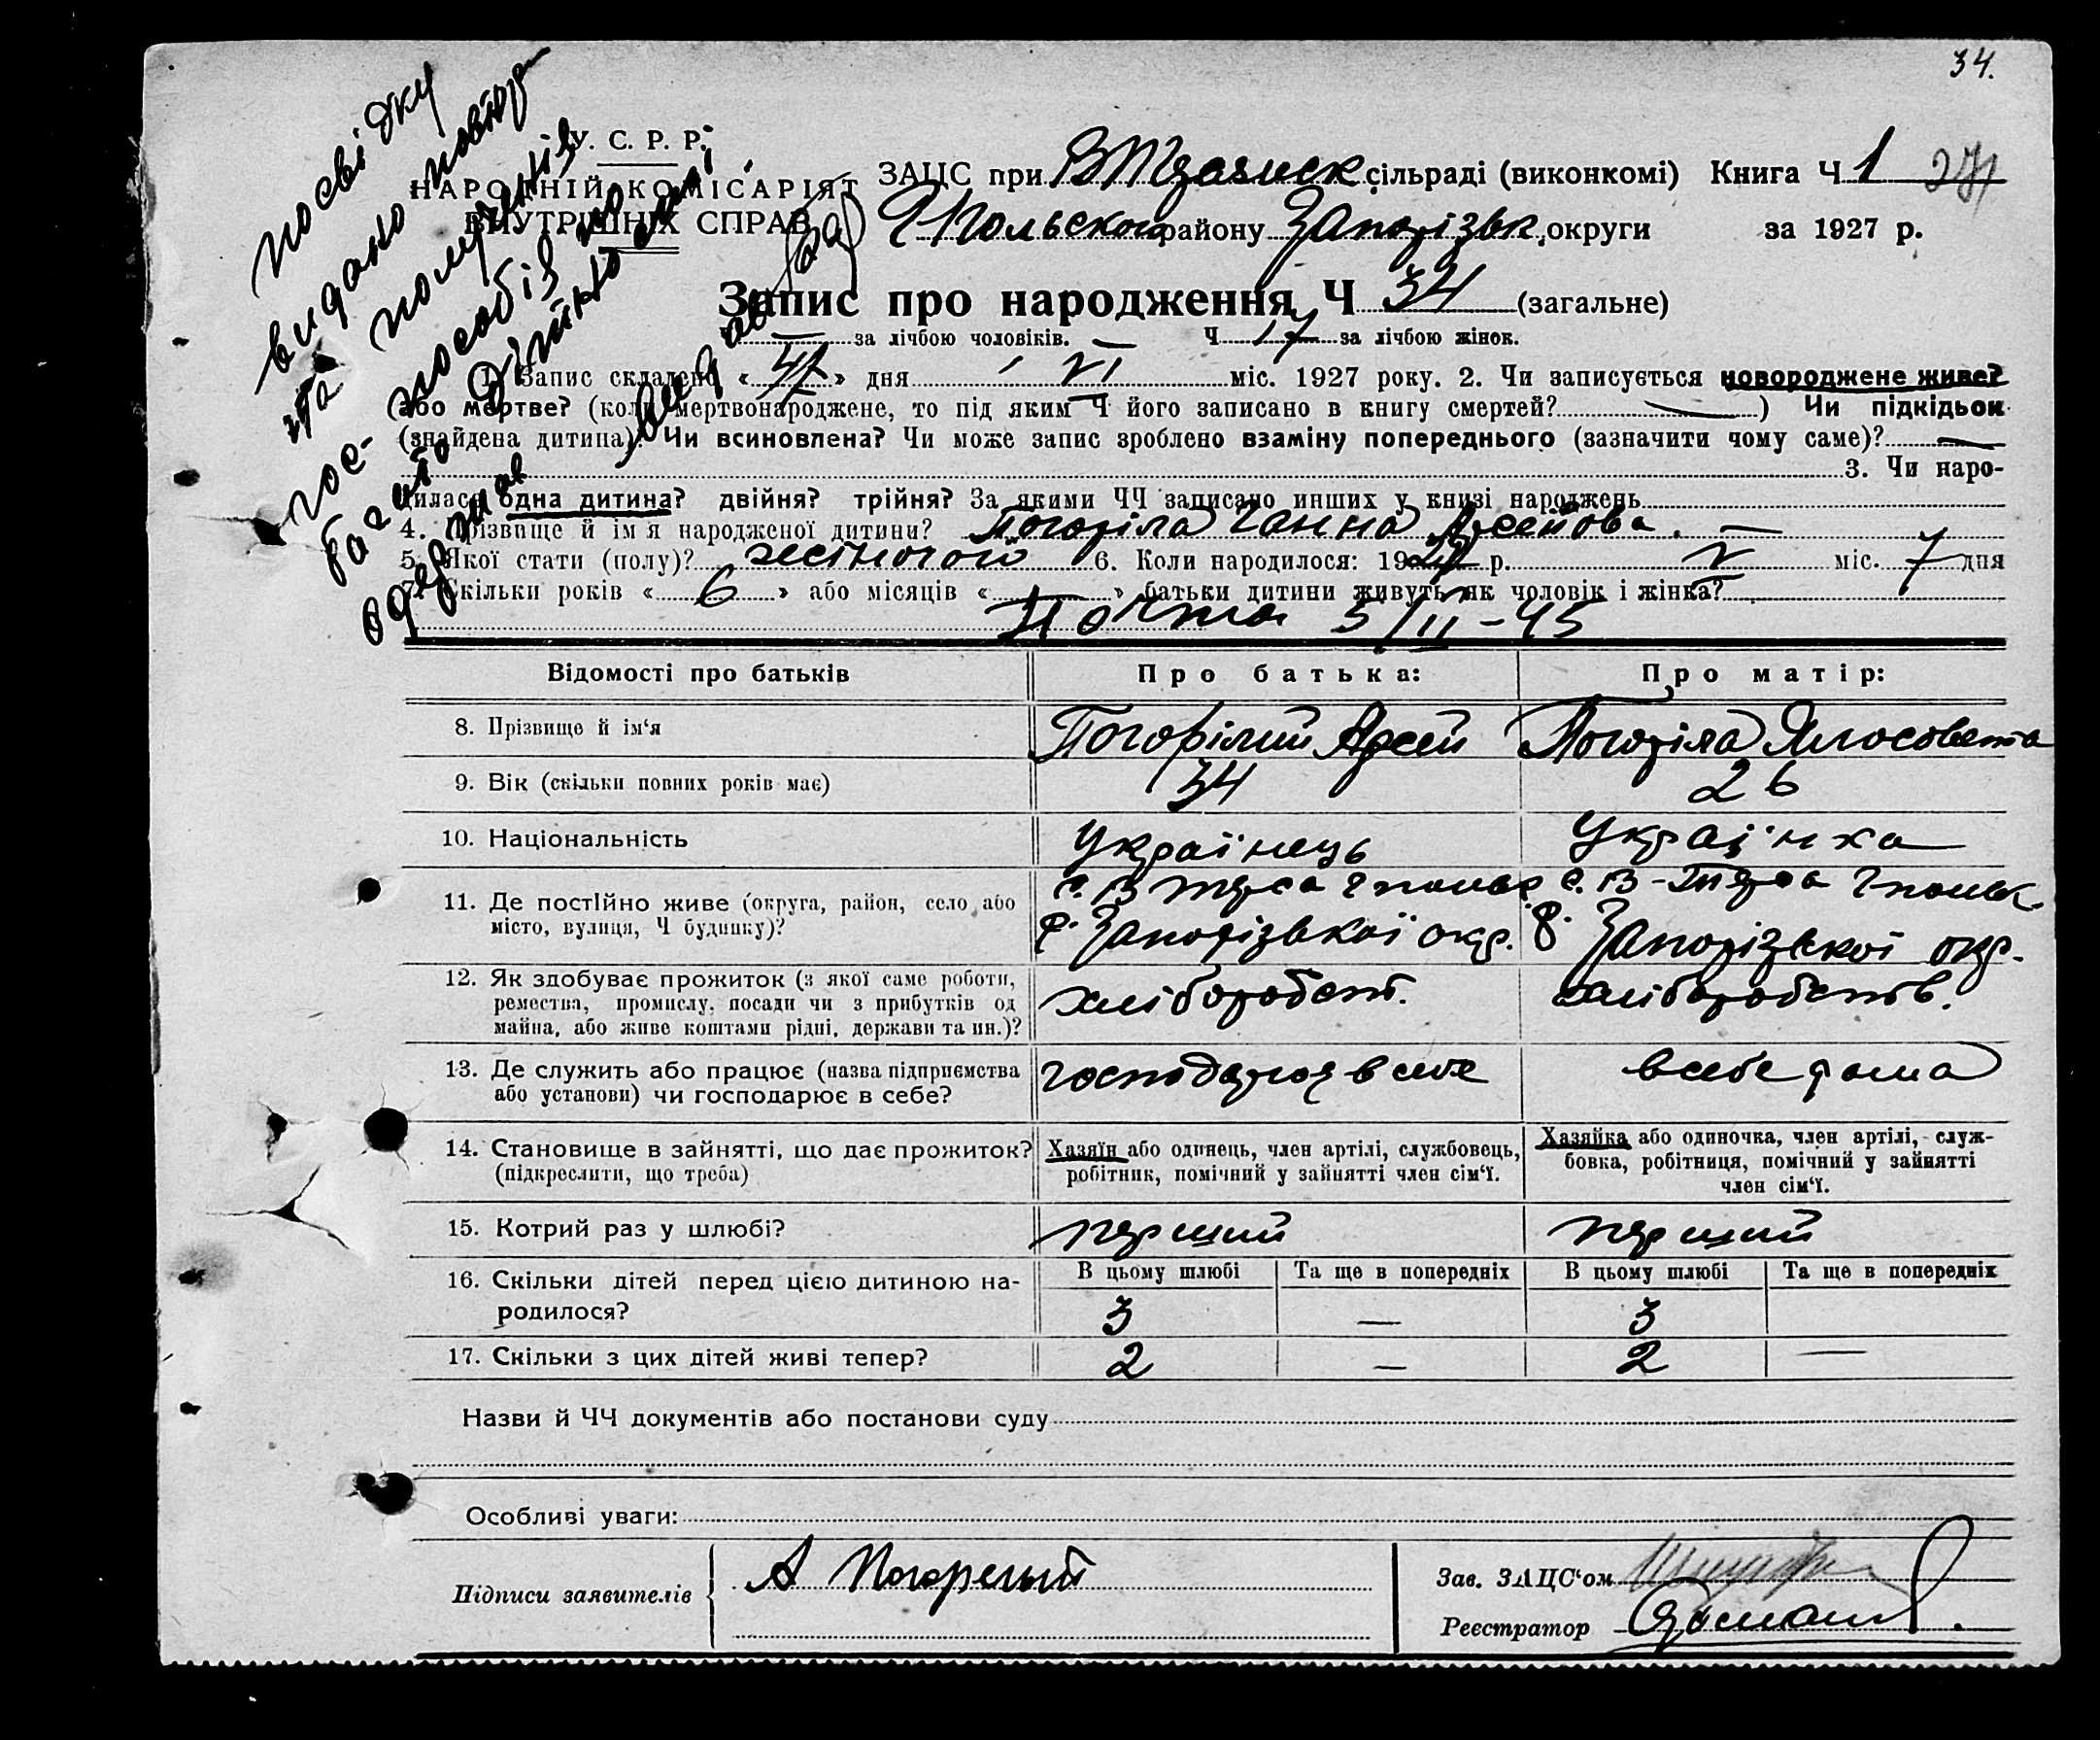 34.
посвідку
видано повтор
на получення
пособія по
багатодітности
У. С. Р. Р.
НАРОДНІЙ КОМІСАРІЯТ
ВНУТРІШНІХ СПРАВ
ЗАЦС при сільраді (виконкомі) Книга Ч 1 271
Гпольского району Запорізьк. округи за 1927 р.
Запис про народження Ч 34 (загальне)
за лічбою чоловіків. — Ч 17 за лічбою жінок.
1. Запис складено « » дня VI міс. 1927 року. 2. Чи записується новороджене живе?
або мертве? (коли мертвонароджене, то під яким Ч його записано в книгу смертей? —) Чи підкідьок
(знайдена дитина)? Чи всиновлена? Чи може запис зроблено взаміну попереднього (зазначити чому саме)? —
3. Чи наро-
дилася одна дитина? двійня? трійня? За якими ЧЧ записано инших у книзі народжень
4. Прізвище й ім'я народженої дитини? Погоріла Ганна Арсейова. —
5. Якої стати (полу)? жіночої 6. Коли народилося: 1927 р. V міс. 7 дня
7. Скільки років « 6 » або місяців « — » батьки дитини живуть як чоловік і жінка?
5/II-45
Відомості про батьків Про батька: Про матір:
8. Прізвище й ім'я Погорілий Арсей Погоріла Ялосовета
9. Вік (скільки повних років має) 34 26
10. Національність Українець Українка
11. Де постійно живе (округа, район, село або с. В Терса Гпольс с. В-Терса Гпольс.
місто, вулиця, Ч будинку)? р. Запорізької окр. р. Запорізької окр.
12. Як здобуває прожиток (з якої саме роботи,
ремества, промислу, посади чи з прибутків од хліборобст. хліборобств.
майна, або живе коштами рідні, держави та ин.)?
13. Де служить або працює (назва підприємства господарює в себе в себе дома
або установи) чи господарює в себе?
14. Становище в зайнятті, що дає прожиток? Хазяїн або одинець, член артілі, службовець, Хазяйка або одиночка, член артілі, служ-
(підкреслити, що треба) робітник, помічний у зайнятті член сім'ї. бовка, робітниця, помічний у зайнятті
член сім'ї.
15. Котрий раз у шлюбі? перший перший
16. Скільки дітей перед цією дитиною на- В цьому шлюбі Та ще в попередніх В цьому шлюбі Та ще в попередніх
родилося? 3 — 3
17. Скільки з цих дітей живі тепер? 2 — 2 —
Назви й ЧЧ документів або постанови суду
Особливі уваги:
Підписи заявителів А Погорелый
Зав. ЗАЦС'ом
Реєстратор